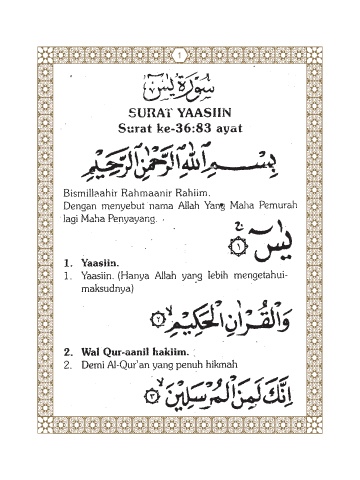 1
سُوْرَةُ يٰسٓ
SURAT YAASIIN
Surat ke-36:83 ayat
بِسْمِ اللّٰهِ الرَّحْمٰنِ الرَّحِيْمِ
Bismillaahir Rahmaanir Rahiim.
Dengan menyebut nama Allah Yang Maha Pemurah
lagi Maha Penyayang.
يٰسٓ ۚ ﴿١﴾
1. Yaasiin.
1. Yaasiin. (Hanya Allah yang lebih mengetahui-
maksudnya)
وَالْقُرْاٰنِ الْحَكِيْمِ ۙ ﴿٢﴾
2. Wal Qur-aanil hakiim.
2. Demi Al-Qur'an yang penuh hikmah
اِنَّكَ لَمِنَ الْمُرْسَلِيْنَ ۙ ﴿٣﴾